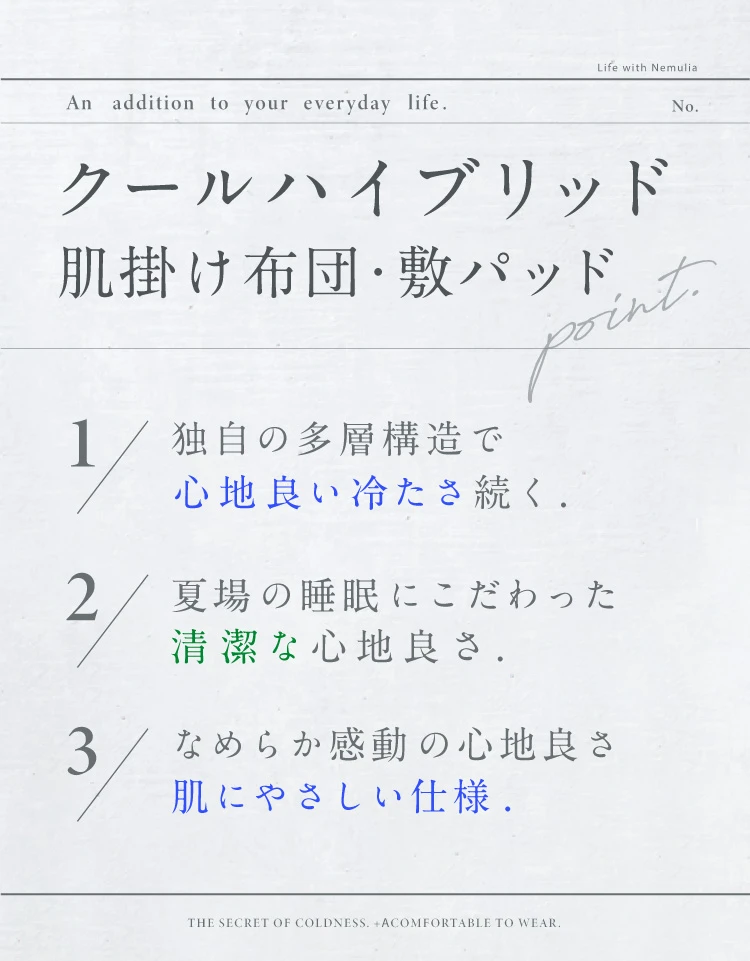 Life with Nemulia
An addition to your everyday life.
No.
クールハイブリッド
肌掛け布団・敷パッド
point.
1
独自の多層構造で
心地良い冷たさ続く.
2
夏場の睡眠にこだわった
清潔な心地良さ.
3
なめらか感動の心地良さ
肌にやさしい仕様.
THE SECRET OF COLDNESS. +ACOMFORTABLE TO WEAR.